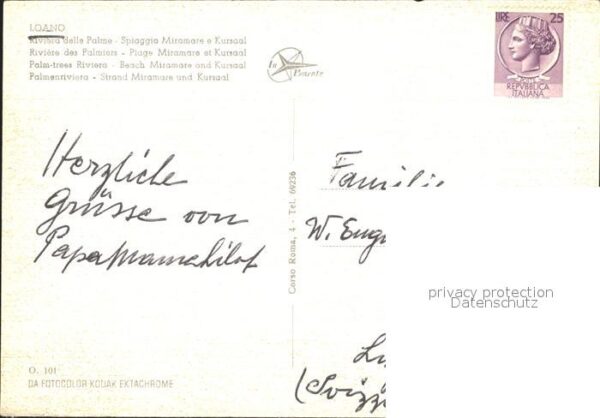 LOANO
Riviera delle Palme - Spiaggia Miramare e Kursaal
Rivière des Palmiers - Plage Miramare et Kursaal
Palm-trees Riviera - Beach Miramare and Kursaal
Palmenriviera - Strand Miramare und Kursaal
LIRE 25
REPVBBLICA
ITALIANA
Herzliche
Grüsse von
Papa Mama
Corso Roma, 4 - Tel. 69236
Familie
W. Eug
privacy protection
Datenschutz
(Svizz
O. 101
DA FOTOCOLOR KODAK EKTACHROME